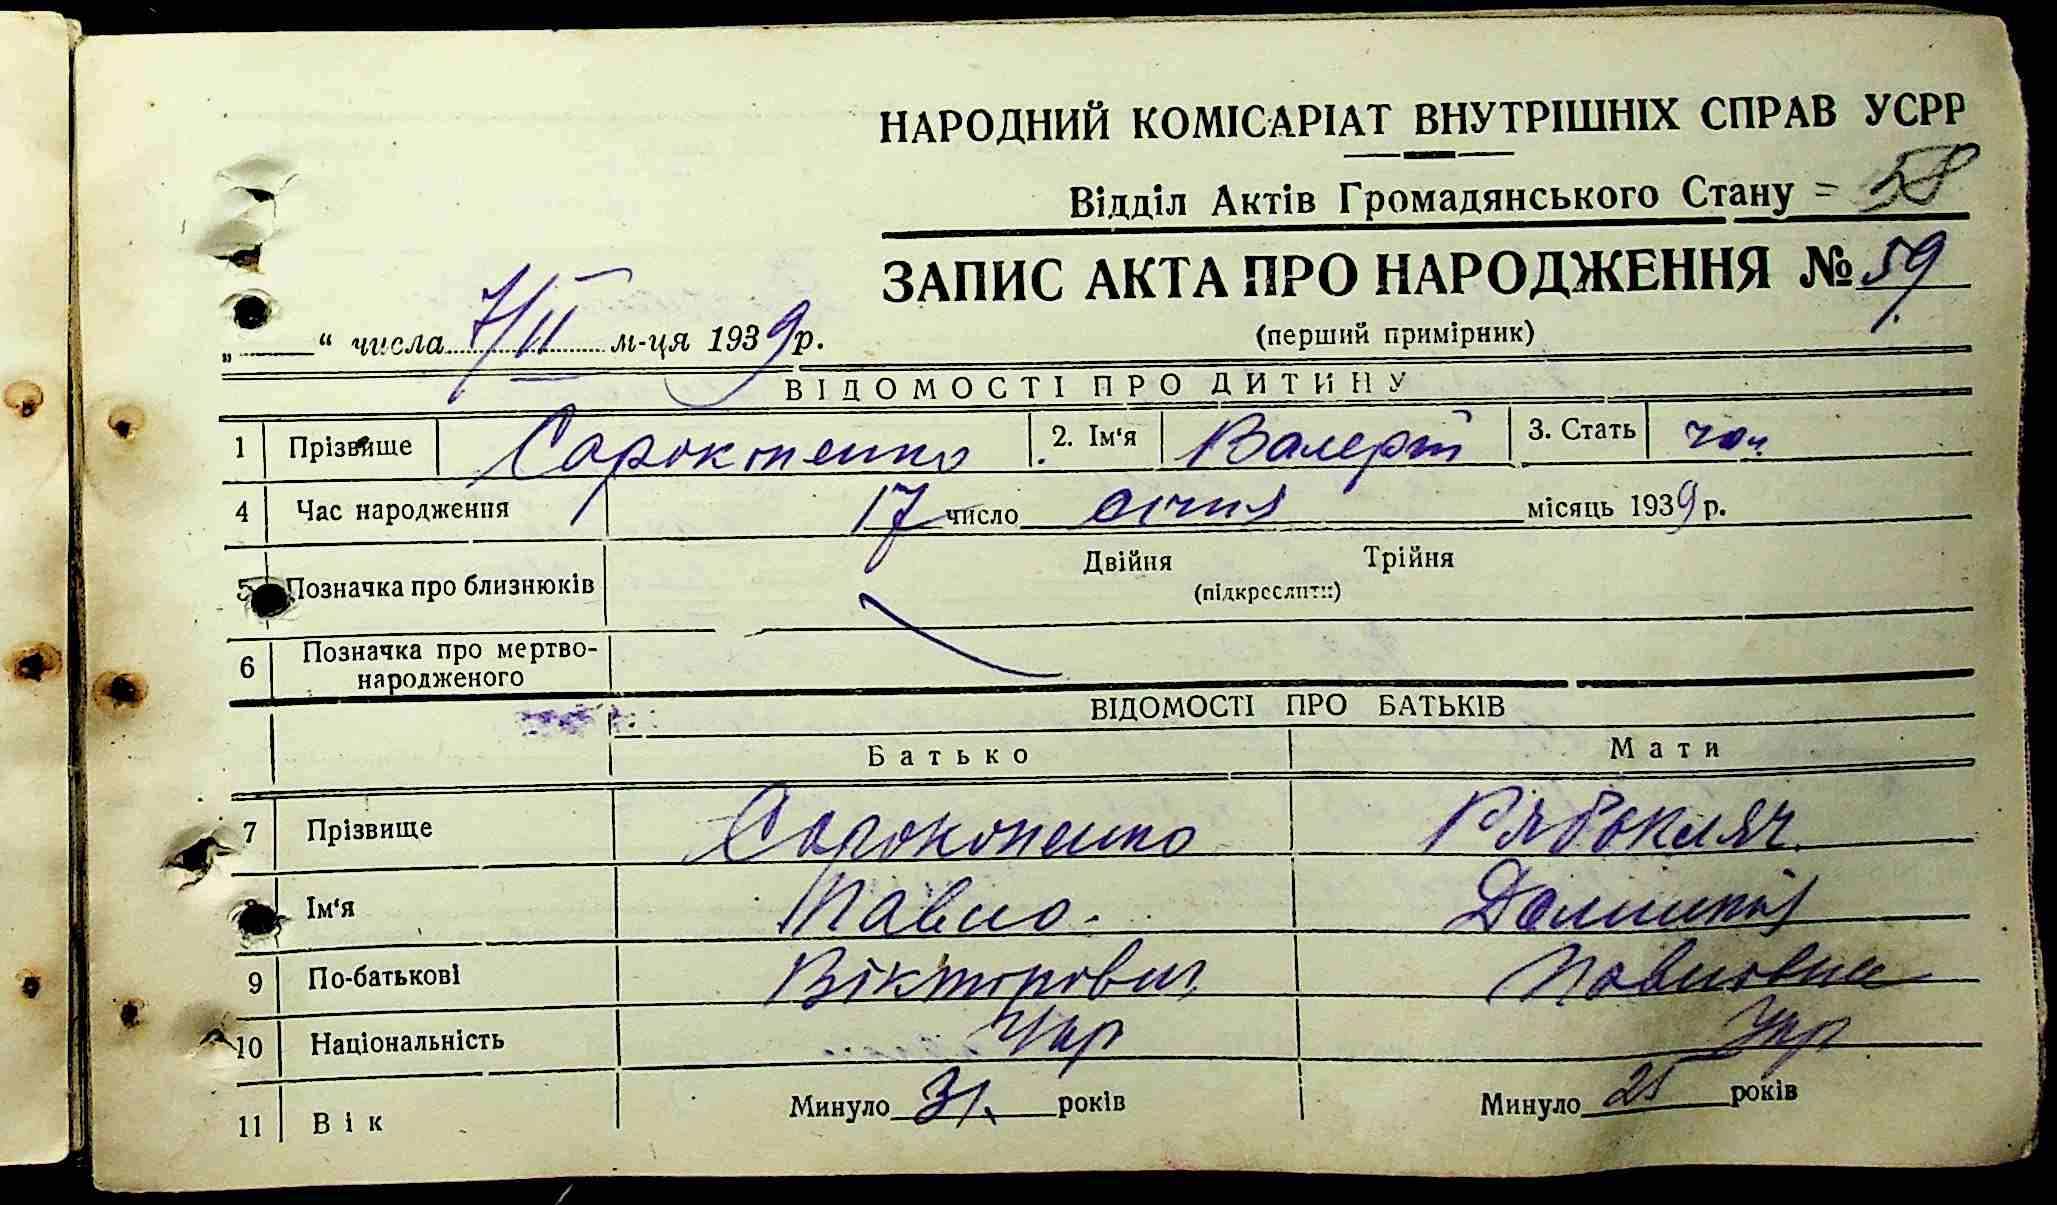 НАРОДНИЙ КОМІСАРІАТ ВНУТРІШНІХ СПРАВ УСРР
Відділ Актів Громадянського Стану = 58
ЗАПИС АКТА ПРО НАРОДЖЕННЯ № 59
(перший примірник)
„ “ числа 7/II м-ця 1939 р.
ВІДОМОСТІ ПРО ДИТИНУ
1 Прізвище Сорокопенко 2. Ім'я Валерій 3. Стать чол
4 Час народження 17 число січня місяць 1939 р.
5 Позначка про близнюків Двійня Трійня
(підкреслити)
6 Позначка про мертво-
народженого
ВІДОМОСТІ ПРО БАТЬКІВ
Батько Мати
7 Прізвище Сорокопенко Рябокляч
Ім'я Павло
9 По-батькові Вікторович Павловна
10 Національність Укр Укр
11 Вік Минуло 31 років Минуло 25 років